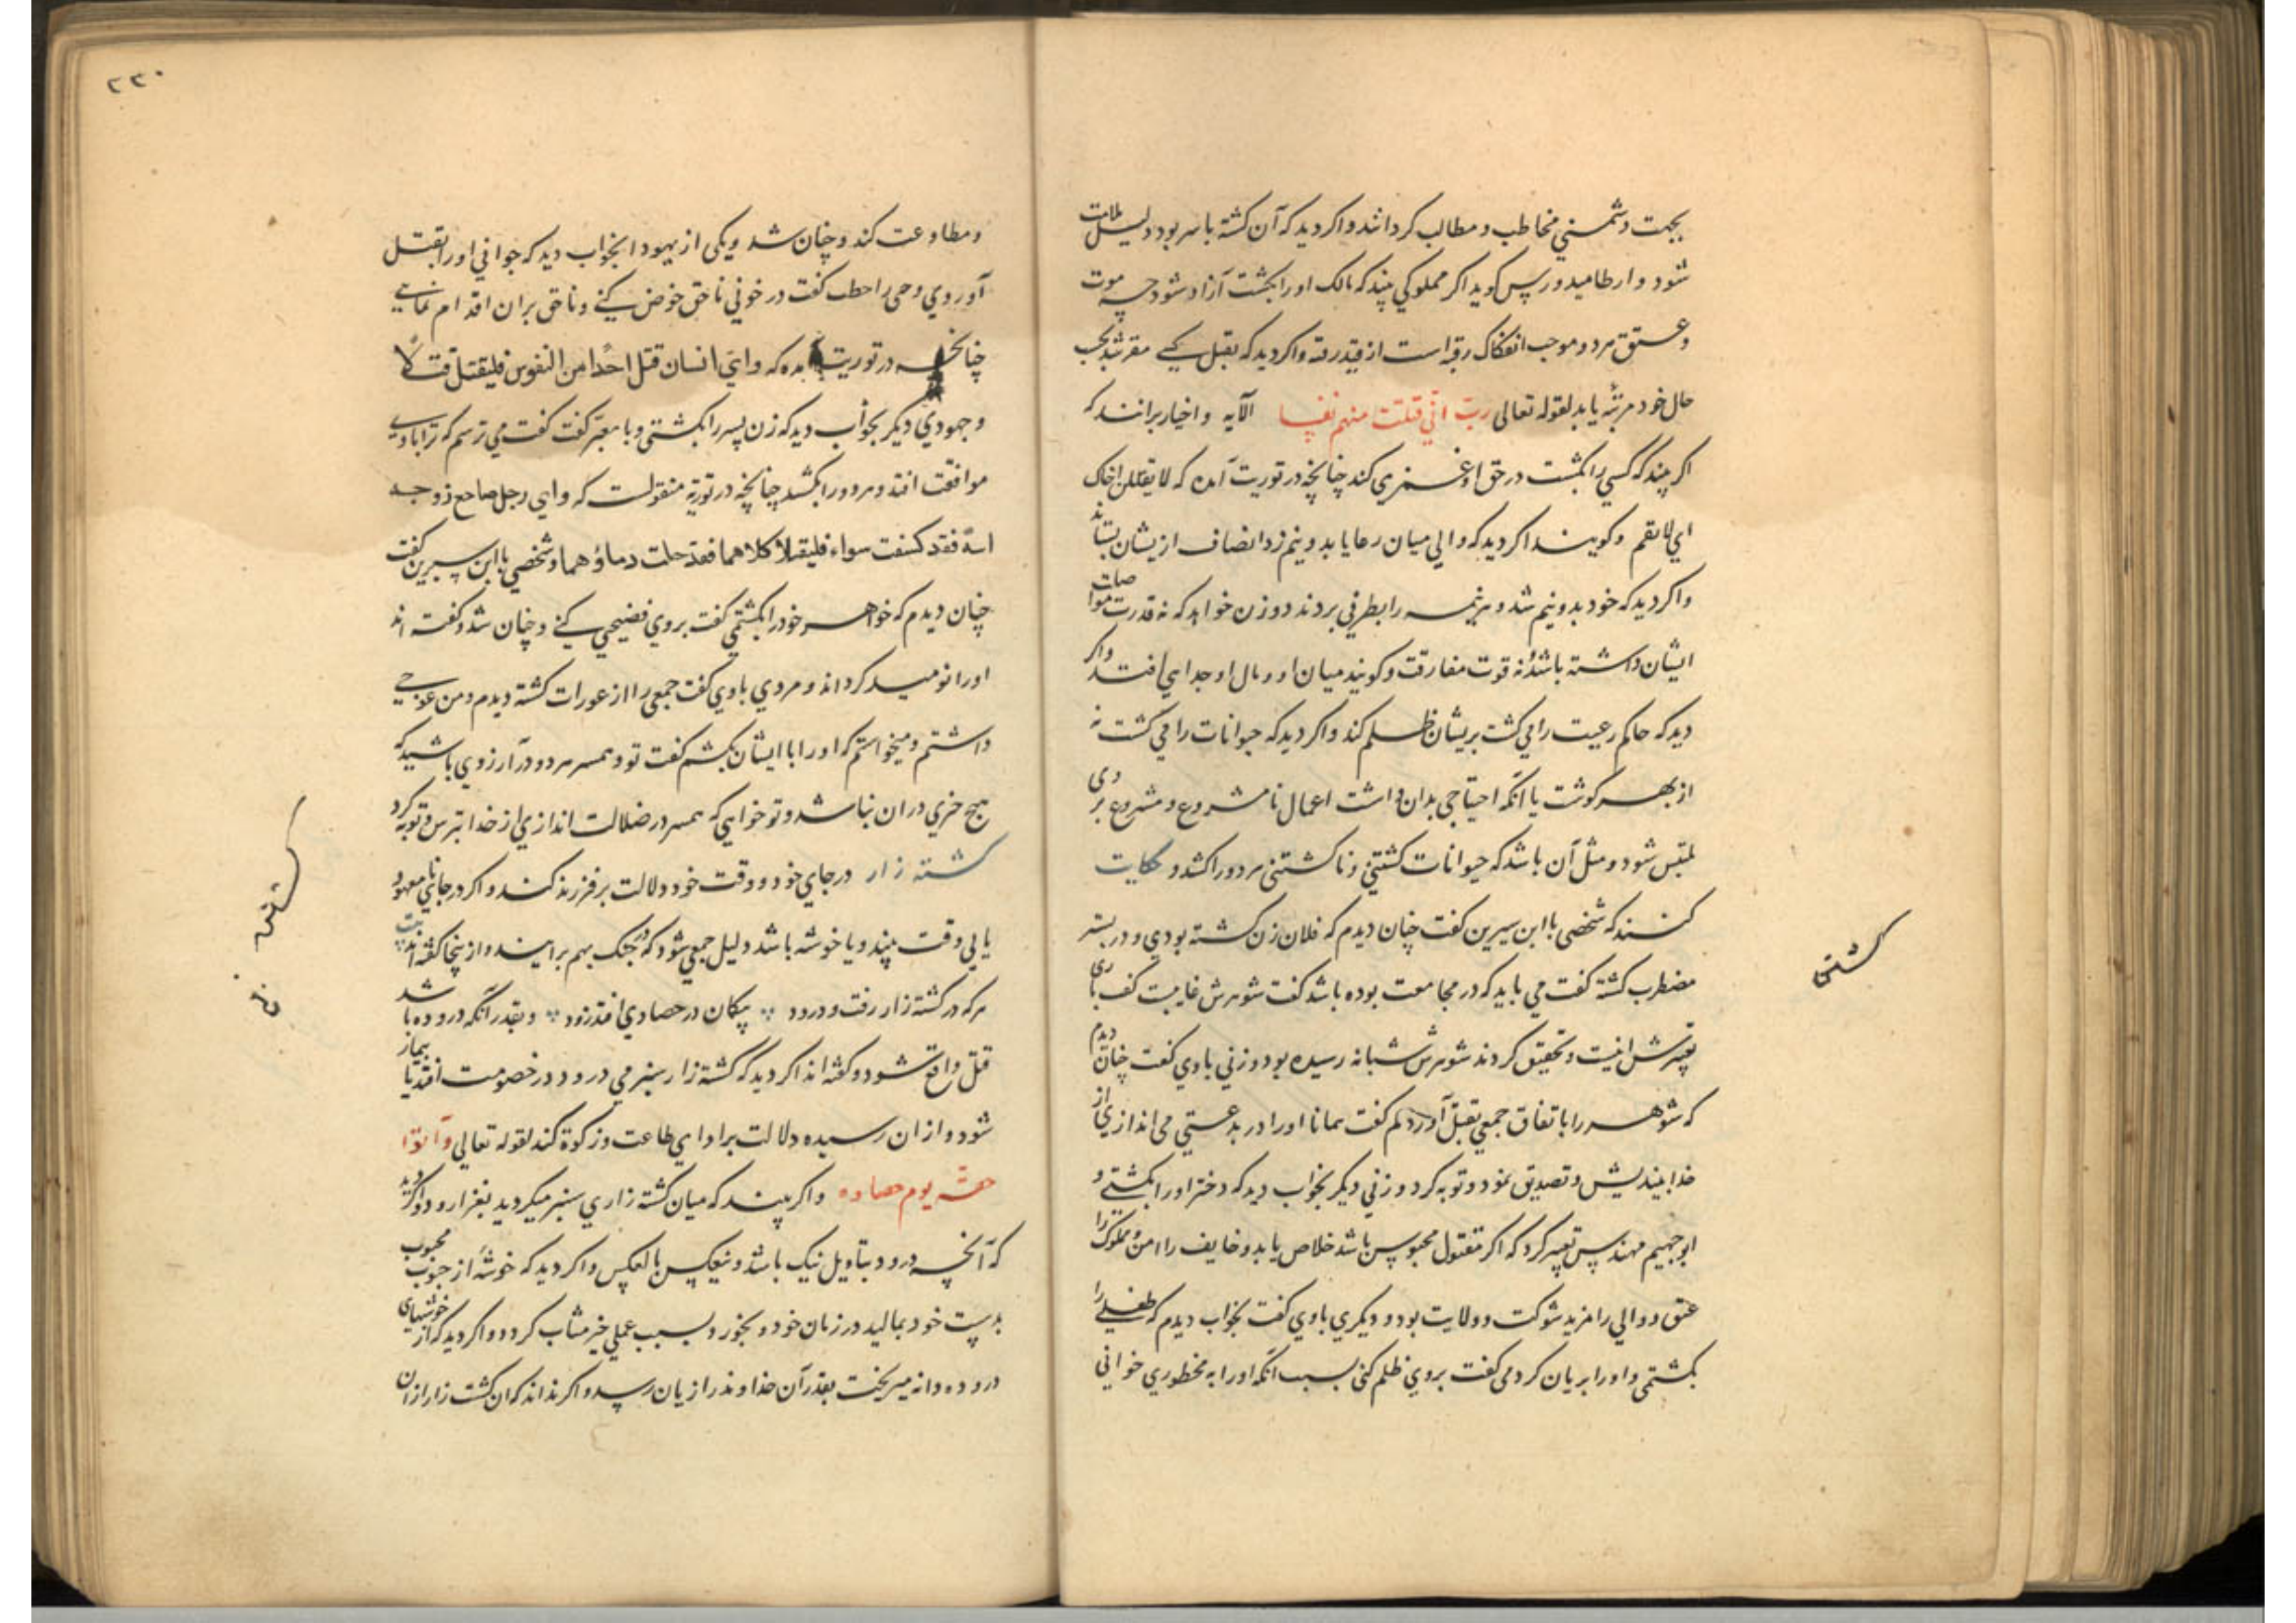 بجهت دشمني مخاطب و مطالب كردانند و اكر ديد كه آن كشته با سر بود دليل ملامت
شود و ارطاميدورس كويد اكر مملوكي بيند كه مالك او را بكشت آزاد شود چه موت
و عتق مرد و موجب انفكاك رقبه است از قيد رقه و اكر ديد كه بقتل كسي مقر شد بحسب
حال خود مرتبه يابد لقوله تعالى رب اني قتلت منهم نفسا الآيه و اخيار برانند كه
اكر بيند كه كسي را بكشت در حق او غمزي كند چنانچه در توريت آمده كه لا يقتلن اخاك
اي لا يقم و كويند اكر ديد كه والي ميان رعايا بدو نيم زد انصاف ازيشان بستاند
و اكر ديد كه خود بدو نيم شد و هر نيمه را بطرفي بردند دو زن خواهد كه نه قدرت مواصلت
ايشان داشته باشد نه قوت مفارقت و كويند ميان او و مال او جدايي افتد و اكر
ديد كه حاكم رعيت را مي كشت بريشان ظلم كند و اكر ديد كه حيوانات را مي كشت نه
از بهر كوشت يا آنكه احتياجي بدان داشت اعمال نا مشروع و مشروع بر وى
ملتبس شود و مثل آن باشد كه حيوانات كشتني و ناكشتني هر دو را كشد و حكايت
كنند كه شخصي با ابن سيرين كفت چنان ديدم كه فلان زن كشته بودي و در بستر
مضطرب كشته كفت مي بايد كه در مجامعت بوده باشد كفت شوهرش غايبست كفت بارى
تعبيرش اينست و تحقيق كردند شوهرش شبانه رسيده بود و زني با وي كفت چنان ديدم
كه شوهر را باتفاق جمعي بقتل آوردم كفت همانا او را در بدعتي مى اندازي از
خدا بينديش و تصديق نمود و توبه كرد و زني ديكر بخواب ديد كه دختر او را بكشتي و
ابو جهيم مهندس تعبير كرد كه اكر مقتول محبوس باشد خلاص يابد و خايف را امن و مملوك را
عتق و والي را مزيد شوكت و ولايت بود و ديكري با وي كفت بخواب ديدم كه طفلي را
بكشتمى و او را بريان كردمى كفت بروي ظلم كنى بسبب آنكه او را به محظوري خوانى
كشتى
٢٣٠
و مطاوعت كند و چنان شد و يكى از يهود بخواب ديد كه جواني او را بقتل
آوردي و حى راحطب كفت در خوني ناحق خوض كني و ناحق بران اقدام نمايي
چنانچه در توريت آمده كه و اي انسان قتل احدا من النفوس فليقتل قتلا
و جهودي ديكر بخواب ديد كه زن پسر را بكشتى و با معبر كفت كفت مي ترسم كه ترا با وي
موافقت افتد و هر دو را بكشند چنانچه در توريه منقولست كه و اي رجل ضاجع زوجه
ابنه فقد كشفت سواه فليقتلا كلاهما فقد حلت دماؤهما و شخصي با ابن سيرين كفت
چنان ديدم كه خواهر خود را بكشتمي كفت بروي فضيحي كني و چنان شد و كفته اند
او را نوميد كرداند و مردي با وي كفت جمعى را از عورات كشته ديدم و من عوجي
داشتم و ميخواستم كه او را با ايشان بكشم كفت تو و همسر هر دو در آرزوي باشيد كه
هيچ خيري دران نباشد و تو خواهي كه همسر در ضلالت اندازي از خدا بترس و توبه كرد
كشته زار در جاي خود و وقت خود دلالت بر فرزند كند و اكر در جاي نامعهود
يا بي وقت بيند و يا خوشه باشد دليل جمعي شود كه در جنك بهم برايند و از ينجا كفته اند بيت
هر كه در كشته زار رفت و درود بيكمان در حصادي افتد زود و بقدر آنكه دروده باشد
قتل واقع شود و كفته اند اكر ديد كه كشته زار سبز مي درود در خصومت افتد يا بيمار
شود و از ان رسيده دلالت بر اداي طاعت و زكوة كند لقوله تعالي و آتوا
حقه يوم حصاده و اكر بيند كه ميان كشته زاري سبز ميكرديد بغزا رود و اكر ديد
كه آنچه درود بتاويل نيك باشد و بعكس بالعكس و اكر ديد كه خوشه از حبوب محبوب
بدست خود بماليد در زمان خود و بخورد بسبب عملي خير مثاب كردد و اكر ديد كه از خوشهاى
دروده دانه ميريخت بقدر آن خداوند را زيان رسد و اكر نداند كه ان كشت زار از ان
كشته زار